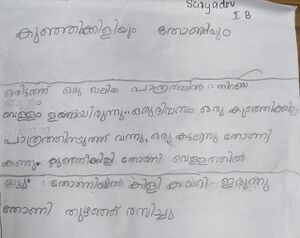 Suryadev
I B
കുഞ്ഞിക്കിളിയും തോണിയും
ഒരിടത്ത് ഒരു വലിയ പാത്രത്തിൽ നിറയെ
വെള്ളം ഉണ്ടായിരുന്നു. ഒരു ദിവസം ഒരു കുഞ്ഞിക്കിളി
പാത്രത്തിനടുത്ത് വന്നു. ഒരു കടലാസു തോണി
കണ്ടു. കുഞ്ഞിക്കിളി തോണി വെള്ളത്തിൽ
ഇട്ടു. തോണിയിൽ കിളി കയറി ഇരുന്നു
തോണി തുഴഞ്ഞ് രസിച്ചു